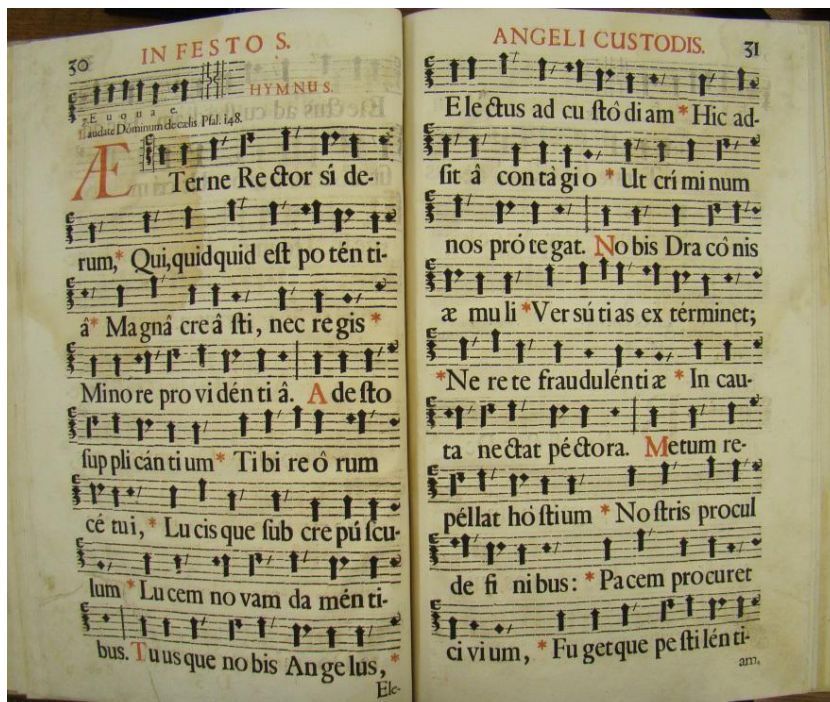 30
IN FESTO S.
HYMNUS.
7. E u o u a e.
Laudate Dóminum de cælis Psal. 148.
Æ Ter ne Re ctor sí de-
rum,* Qui, quidquid est po tén ti-
â* Magnâ cre â sti, nec re gis *
Mino re pro vi dén ti â. A de sto
sup pli cán ti um* Ti bi re ô rum
cé tui, * Lu cis que sub cre pú scu-
lum * Lu cem no vam da mén ti-
bus. Tu us que no bis An ge lus, *
Ele-
ANGELI CUSTODIS.
31
Ele ctus ad cu stô di am * Hic ad-
sit â con tà gi o * Ut crí mi num
nos pró te gat. No bis Dra cô nis
æ mu li * Ver sú ti as ex términet;
* Ne re te fraudulénti æ * In cau-
ta ne ctat pé ctora. Metum re-
péllat hó stium * No stris procul
de fi nibus: * Pacem procuret
ci vi um, * Fu getque pe sti lén ti-
am,